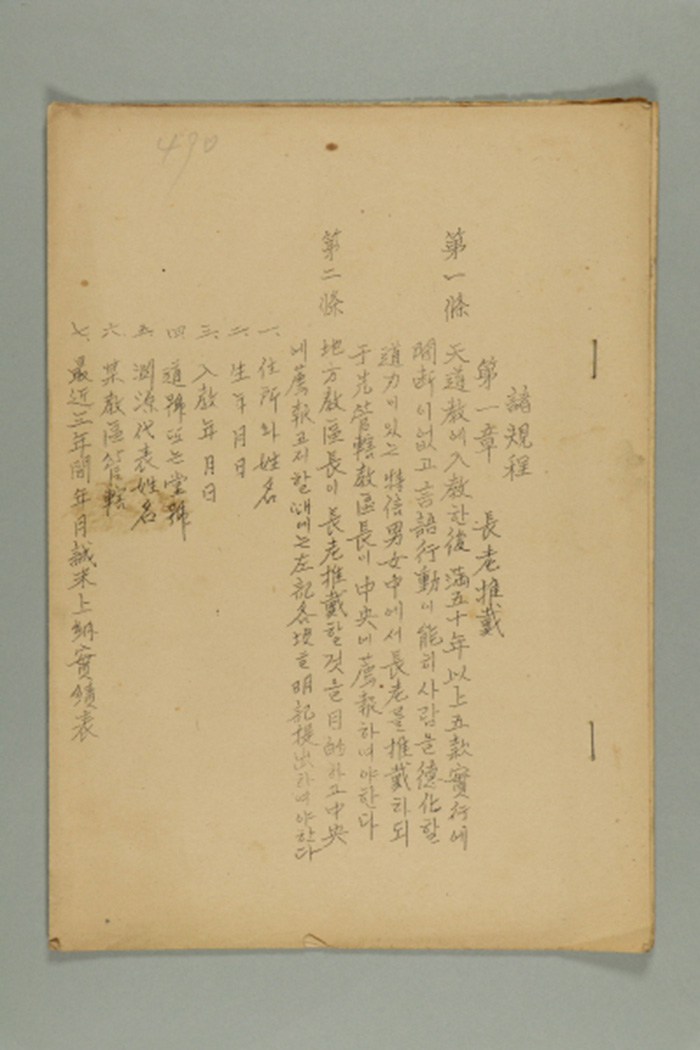 490
諸規程
第一章 長老推戴
第一條 天道教에入教한後滿五十年以上五款實行에
間断이없고言語行動이能히사람을德化할
道力이있는特信男女中에서長老를推戴하되
于先管轄教區長이中央에薦報하여야한다
第二條 地方教區長이長老推戴할것을目的하고中央
에薦報코저할때에는左記各項을明記提出하여야한다
一、住所와姓名
二、生年月日
三、入教年月日
四、道號또는堂號
五、淵源代表姓名
六、某教區管轄
七、最近三年間年月誠米上納實績表